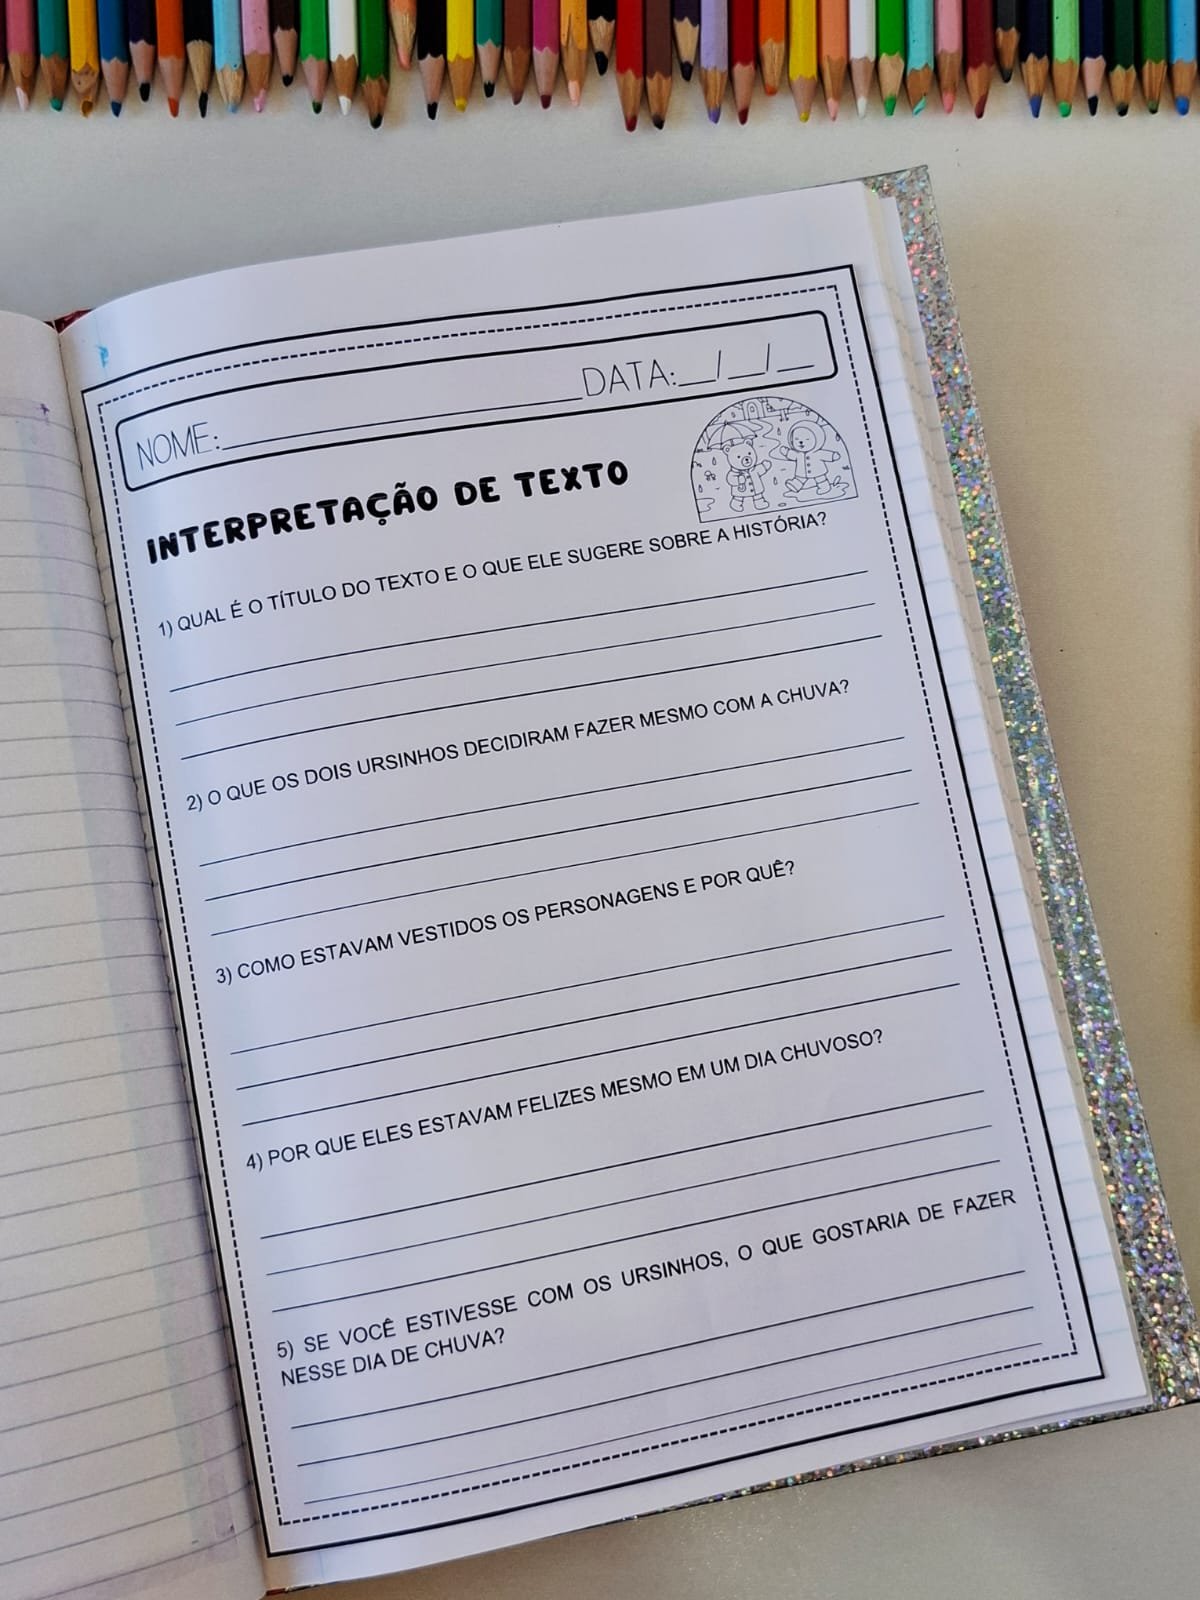 NOME:____________________DATA:__/__/__
INTERPRETAÇÃO DE TEXTO
1) QUAL É O TÍTULO DO TEXTO E O QUE ELE SUGERE SOBRE A HISTÓRIA?
2) O QUE OS DOIS URSINHOS DECIDIRAM FAZER MESMO COM A CHUVA?
3) COMO ESTAVAM VESTIDOS OS PERSONAGENS E POR QUÊ?
4) POR QUE ELES ESTAVAM FELIZES MESMO EM UM DIA CHUVOSO?
5) SE VOCÊ ESTIVESSE COM OS URSINHOS, O QUE GOSTARIA DE FAZER
NESSE DIA DE CHUVA?